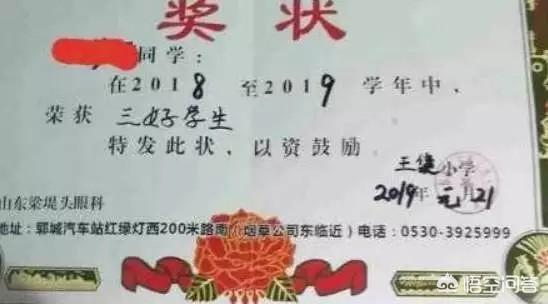 奖状
同学:
在2018至2019学年中,
荣获 三好学生
特发此状,以资鼓励
小学
2019年元月21
山东梁堤头眼科
地址:郓城汽车站红绿灯西200米路南(烟草公司东临近)电话:0530-3925999
悟空问答